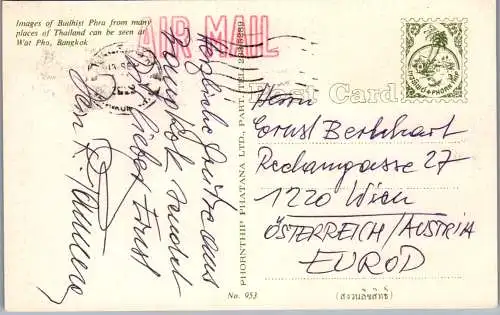 Images of Budhist Phra from many
places of Thailand can be seen at
Wat Pho, Bangkok
AIR MAIL
Post Card
Herzliche Grüsse aus
Bangkok sendet
Dir lieber Ernst
Dein
PHORNTHIP PHATANA LTD., PART.
Herrn
Ernst Berkhart
Rechangasse 27
1220 Wien
ÖSTERREICH/AUSTRIA
EUROP
No. 953
(สงวนลิขสิทธิ์)